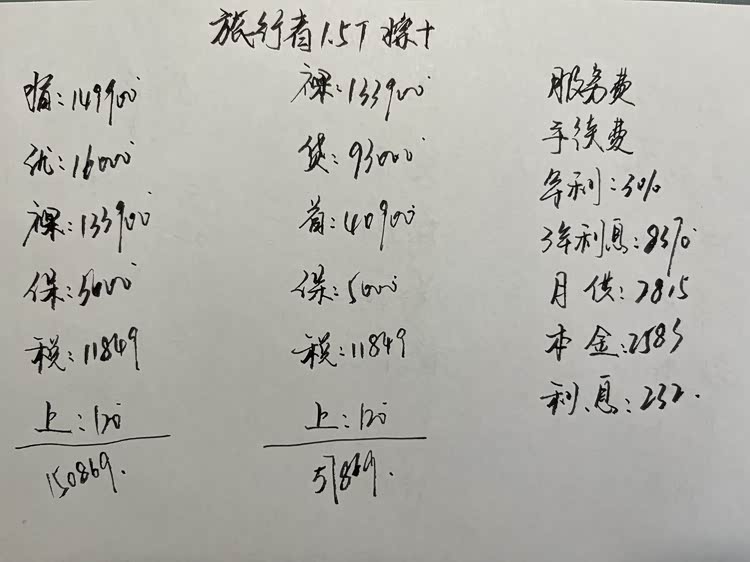 旅行者1.5T 探+
指:149900
优:16000
裸:133900
保:5000
税:11849
上:120
150869.
裸:133900
贷:93000
首:40900
保:5000
税:11849
上:120
57869.
服务费
手续费
年利:3%
3年利息:8370.
月供:2815
本金:2583
利息:232.